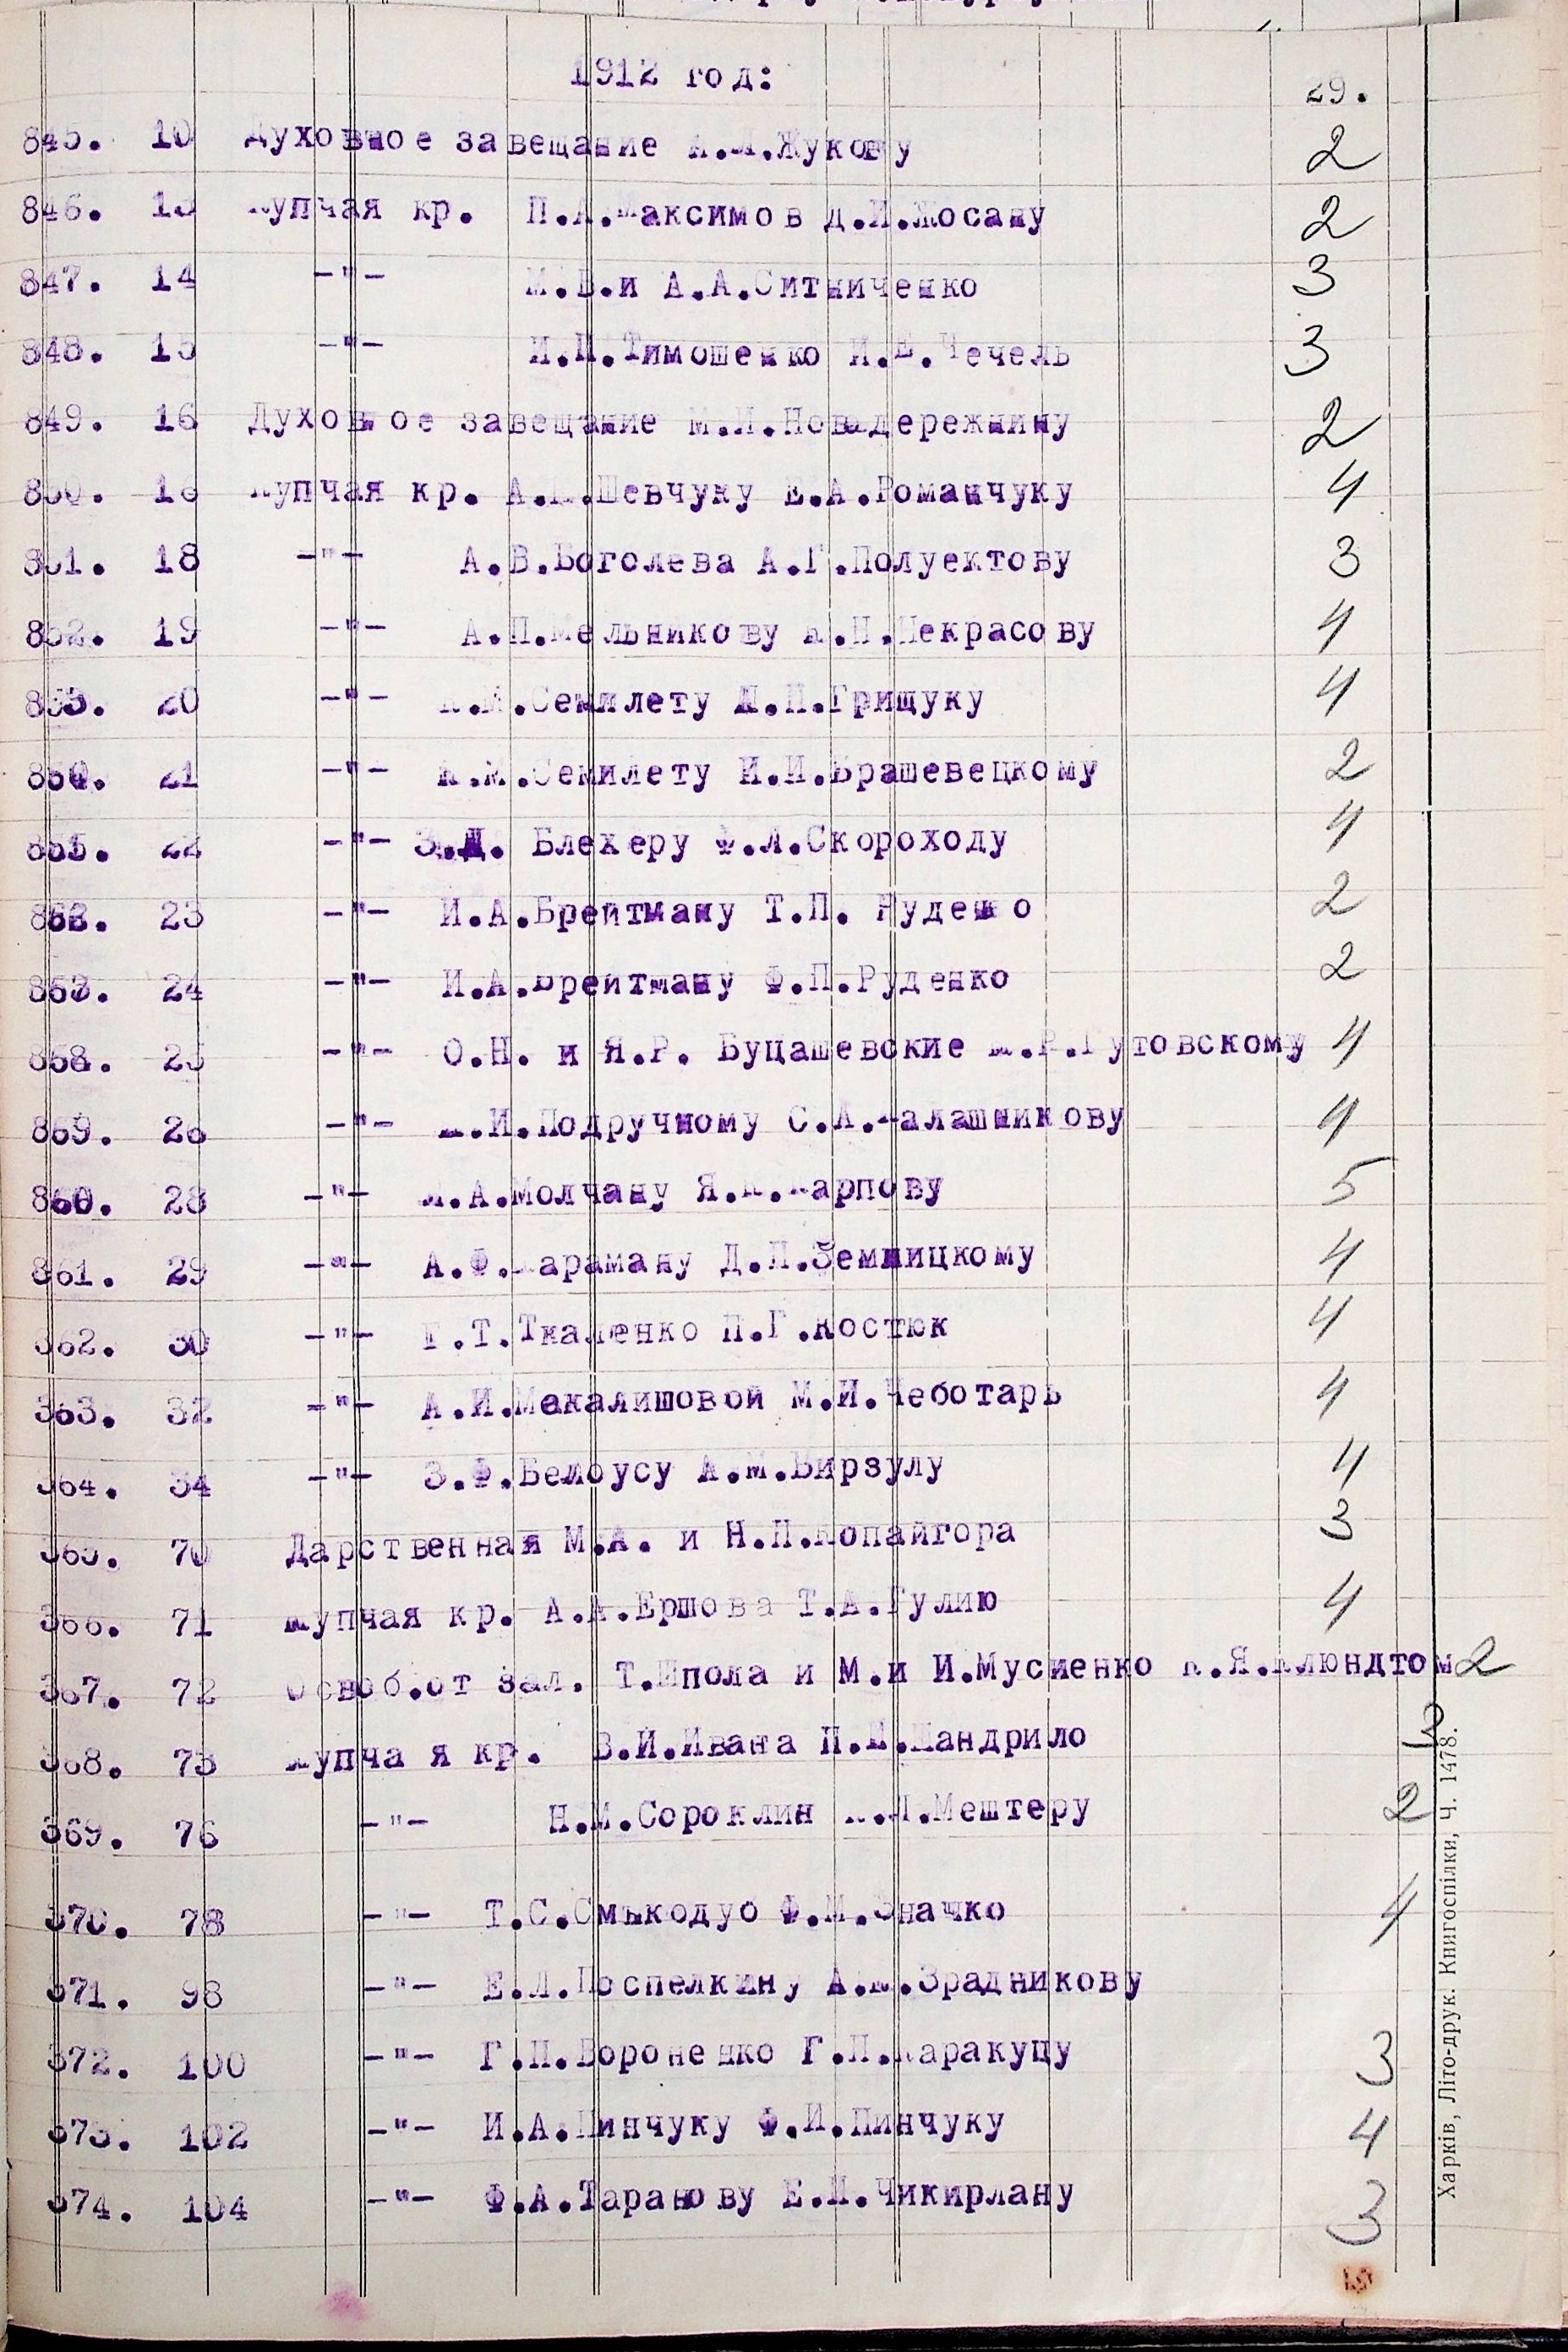 1912 год:
29.
845. 10 Духовное завещание А.Л.Жукову 2
846. 13 Купчая кр. П.А.Максимов Д.И.Жосану 2
847. 14 -"- М.В.и А.А.Ситниченко 3
848. 15 -"- И.П.Тимошенко И.Е.Чечель 3
849. 16 Духовное завещание М.И.Новадережкину 2
850. Купчая кр. Шевчуку Е.А.Романчуку 4
851. 18 -"- А.В.Боголева А.Г.Полуектову 3
852. 19 -"- А.П.Мельникову Некрасову 4
853. 20 -"- К.М.Семилету Грищуку 4
854. 21 -"- К.М.Семилету И.И.Брашевецкому 2
855. 22 -"- З.Д. Блехеру Ф.Л.Скороходу 4
856. 23 -"- И.А.Брейтману Т.П. Руденко 2
857. 24 -"- И.А.Брейтману Ф.П.Руденко 2
858. 25 -"- О.Н. и Я.Р. Буцашевские Гутовскому 4
859. 26 -"- Подручному С.А.Калашникову 4
860. 28 -"- Л.А.Молчану Я.К.Карпову 5
861. 29 -"- А.Ф.Караману Д.П.Земницкому 4
862. 30 -"- Г.Т.Ткаленко П.Г.Костюк 4
863. 32 -"- А.И.Макалишовой М.И.Чеботарь 4
864. 34 -"- З.Ф.Белоусу А.М.Бирзулу 4
865. 70 Дарственная М.А. и Н.П.Копайгора 3
866. 71 Купчая кр. А.А.Ершова Т.А.Гулию 4
867. 72 Освоб.от зал. Т.Шпола и М.и И.Мусиенко К.Я.Клюндтом 2
868. 73 Купча я кр. В.И.Ивана Шандрило 3
869. 76 -"- Н.М.Сороклин Мештеру 2
870. 78 -"- Т.С.Смыкодуб Ф.М.Значко 4
871. 98 -"- Е.Л.Поспелкину Зрадникову
872. 100 -"- Г.П.Вороненко Г.П.Каракуцу 3
873. 102 -"- И.А.Пинчуку Ф.И.Пинчуку 4
874. 104 -"- Ф.А.Таранову Чикирлану 3
Харків, Літо-друк. Книгоспілки, Ч. 1478.